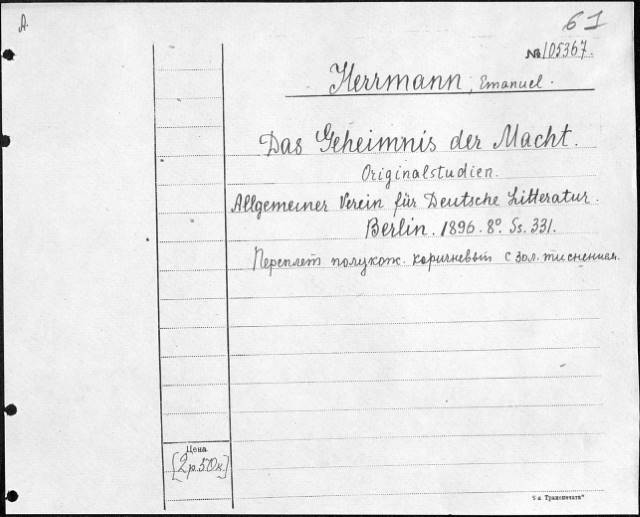 A.
61
№ 105367.
Herrmann, Emanuel.
Das Geheimnis der Macht.
Originalstudien.
Allgemeiner Verein für Deutsche Litteratur.
Berlin. 1896. 8º. Ss. 331.
Переплет полукож. коричневый с зол. тиснениям.
Цена
[2 р. 50 к.]